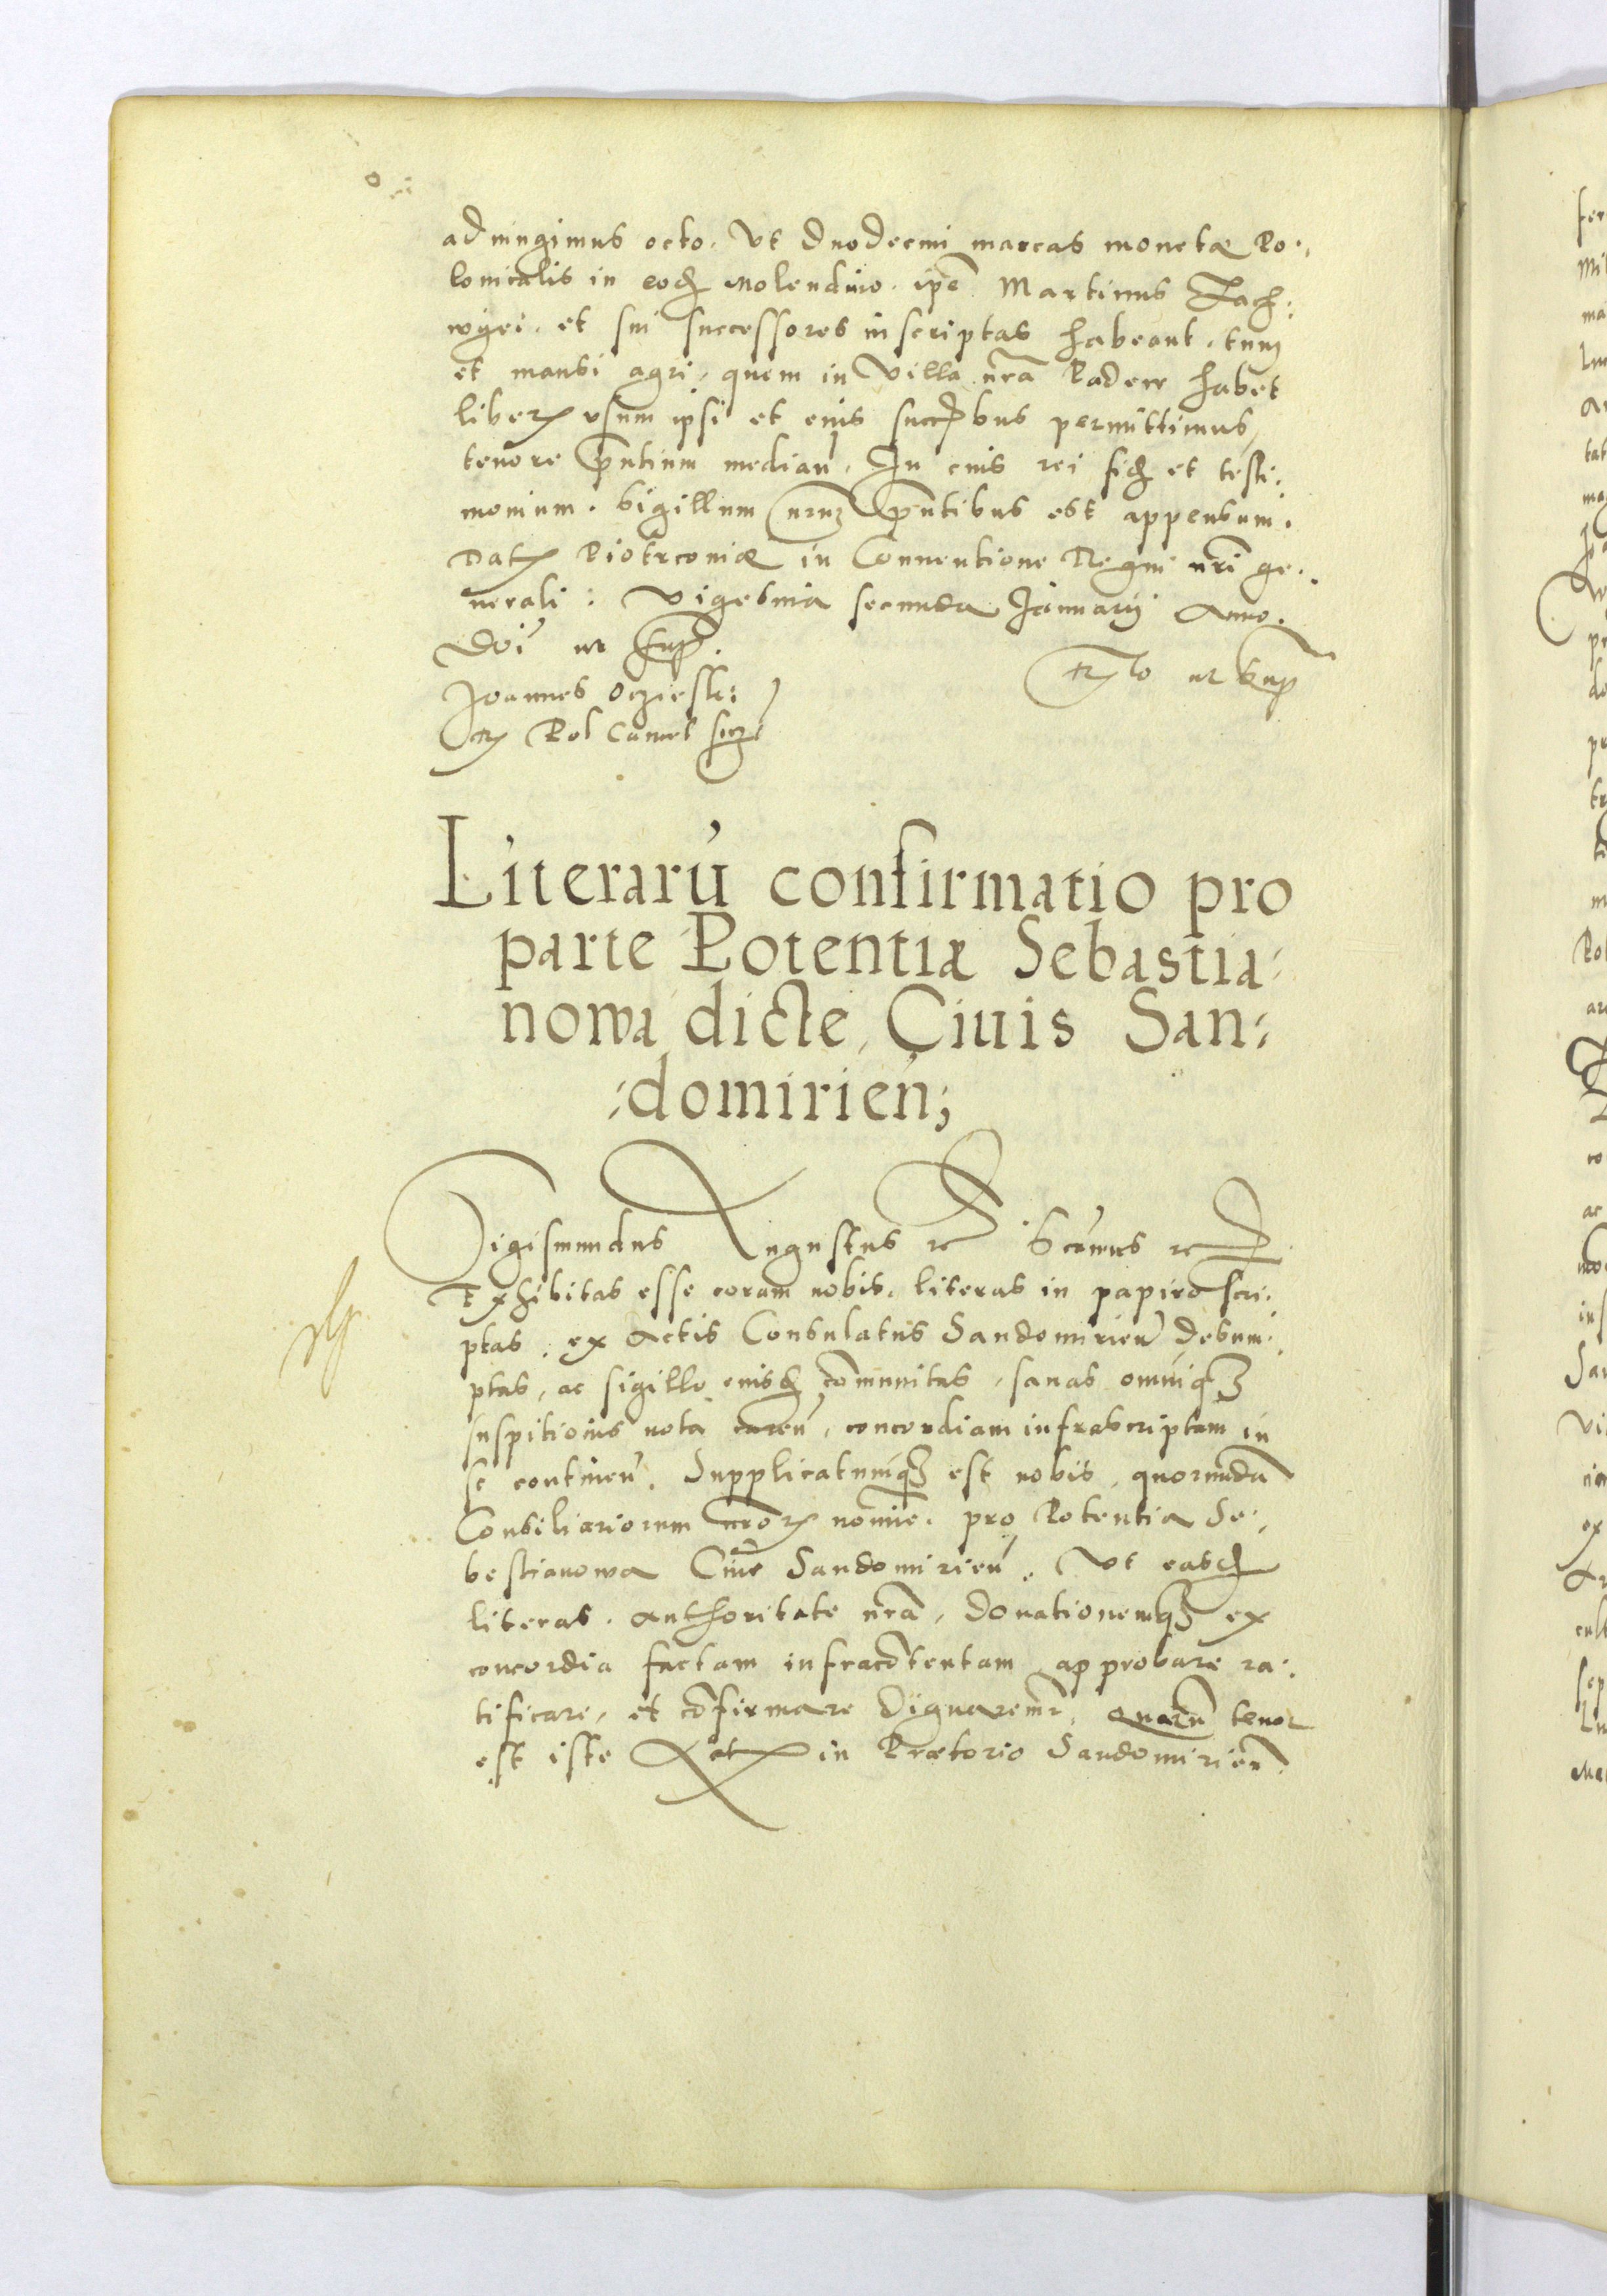 adiungimus octo. Vt duodecim marcas monetæ Po-
lonicalis in eod molendino. ipē Martinus Zach:
wgei. et sui successores inscriptas habeant. tum
et mansi agri, quem in Villa nrā Radew habet
liberū vsum ipsi et eius succribus permittimus,
tenore pntium median. In cuius rei fid et testi:
monium. Sigillum nrum pntibus est appensum.
Dat Piotrcouiæ in Conuentione Regni nri ge.
nerali: Vigesima secunda Januarij Anno.
Doi vt sup.
Joannes Ocziesky
R Pol Cancel
Rlo vt sup
Literarū confirmatio pro
parte Potentiæ Sebastia-
nowa dicte, Ciuis San-
-domirien;
Sigismundus Augustus rc Scimus rc
Exhibitas esse coram nobis. literas in papiro scri.
ptas. ex Actis Consulatus Sandomirien desum.
ptas, ac sigillo eiusd cōmunitas, sanas omniq3
suspitionis nota caren, concordiam infrascriptam in
se continen. Supplicatumq3 est nobis, quorumdā
Consiliariorum nrorū nomine. pro Potentia Se-
bestianowa Ciue Sandomirien. Vt easd
literas. authoritate nrā, donationemq3 ex
concordia factam infracōtentam approbare ra.
tificare, et cōfirmare dignaremr, quarū tenor
est iste Act in Prætorio Sandomirien